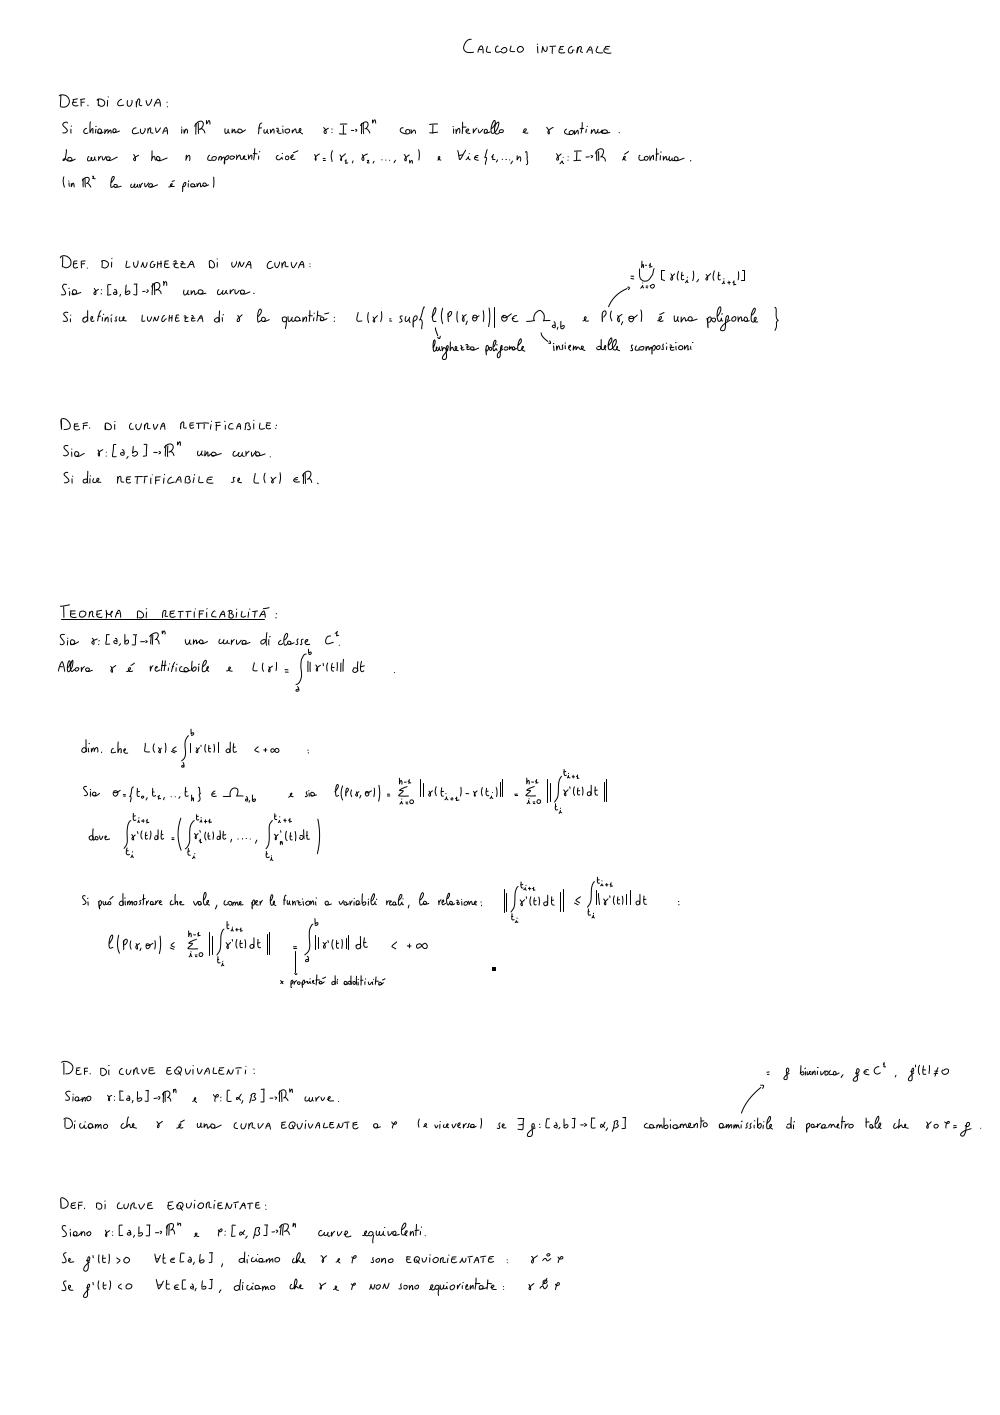 CALCOLO INTEGRALE
DEF. DI CURVA:
Si chiama CURVA in ℝⁿ una funzione γ: I→ℝⁿ con I intervallo e γ continua.
La curva γ ha n componenti cioé γ=(γ₁, γ₂, ..., γₙ) e ∀i∈{1,..,n} γᵢ: I→ℝ é continua.
(in ℝ² la curva é piana)
DEF. DI LUNGHEZZA DI UNA CURVA:
= ⋃_{i=0}^{h-1} [γ(tᵢ), γ(tᵢ₊₁)]
Sia γ: [a,b]→ℝⁿ una curva.
Si definisce LUNGHEZZA di γ la quantitá: L(γ) = sup{ l(P(γ,σ)) | σ∈ Ω_{a,b} e P(γ,σ) é una poligonale }
lunghezza poligonale insieme delle scomposizioni
DEF. DI CURVA RETTIFICABILE:
Sia γ: [a,b]→ℝⁿ una curva.
Si dice RETTIFICABILE se L(γ) ∈ℝ.
TEOREMA DI RETTIFICABILITÁ:
Sia γ: [a,b]→ℝⁿ una curva di classe C¹.
Allora γ é rettificabile e L(γ) = ∫_a^b ||γ'(t)|| dt .
dim. che L(γ) ≤ ∫_a^b |γ'(t)| dt < +∞ :
Sia σ={t₀, t₁, .., t_h} ∈ Ω_{a,b} e sia l(P(γ,σ)) = Σ_{i=0}^{h-1} ||γ(tᵢ₊₁)-γ(tᵢ)|| = Σ_{i=0}^{h-1} ||∫_{tᵢ}^{tᵢ₊₁} γ'(t) dt||
dove ∫_{tᵢ}^{tᵢ₊₁} γ'(t) dt = (∫_{tᵢ}^{tᵢ₊₁} γ₁'(t) dt, ...., ∫_{tᵢ}^{tᵢ₊₁} γₙ'(t) dt)
Si puó dimostrare che vale, come per le funzioni a variabili reali, la relazione: ||∫_{tᵢ}^{tᵢ₊₁} γ'(t) dt|| ≤ ∫_{tᵢ}^{tᵢ₊₁} ||γ'(t)|| dt :
l(P(γ,σ)) ≤ Σ_{i=0}^{h-1} ||∫_{tᵢ}^{tᵢ₊₁} γ'(t) dt|| = ∫_a^b ||γ'(t)|| dt < +∞
x proprietá di additivitá
DEF. DI CURVE EQUIVALENTI:
= g biunivoca, g∈C¹, g'(t)≠0
Siano γ: [a,b]→ℝⁿ e φ: [α,β]→ℝⁿ curve.
Diciamo che γ é una CURVA EQUIVALENTE a φ (e viceversa) se ∃ g: [a,b]→[α,β] cambiamento ammissibile di parametro tale che γ∘φ=g.
DEF. DI CURVE EQUIORIENTATE:
Siano γ: [a,b]→ℝⁿ e φ: [α,β]→ℝⁿ curve equivalenti.
Se g'(t)>0 ∀t∈[a,b], diciamo che γ e φ sono EQUIORIENTATE : γ ≈ φ
Se g'(t)<0 ∀t∈[a,b], diciamo che γ e φ NON sono equiorientate : γ ≉ φ